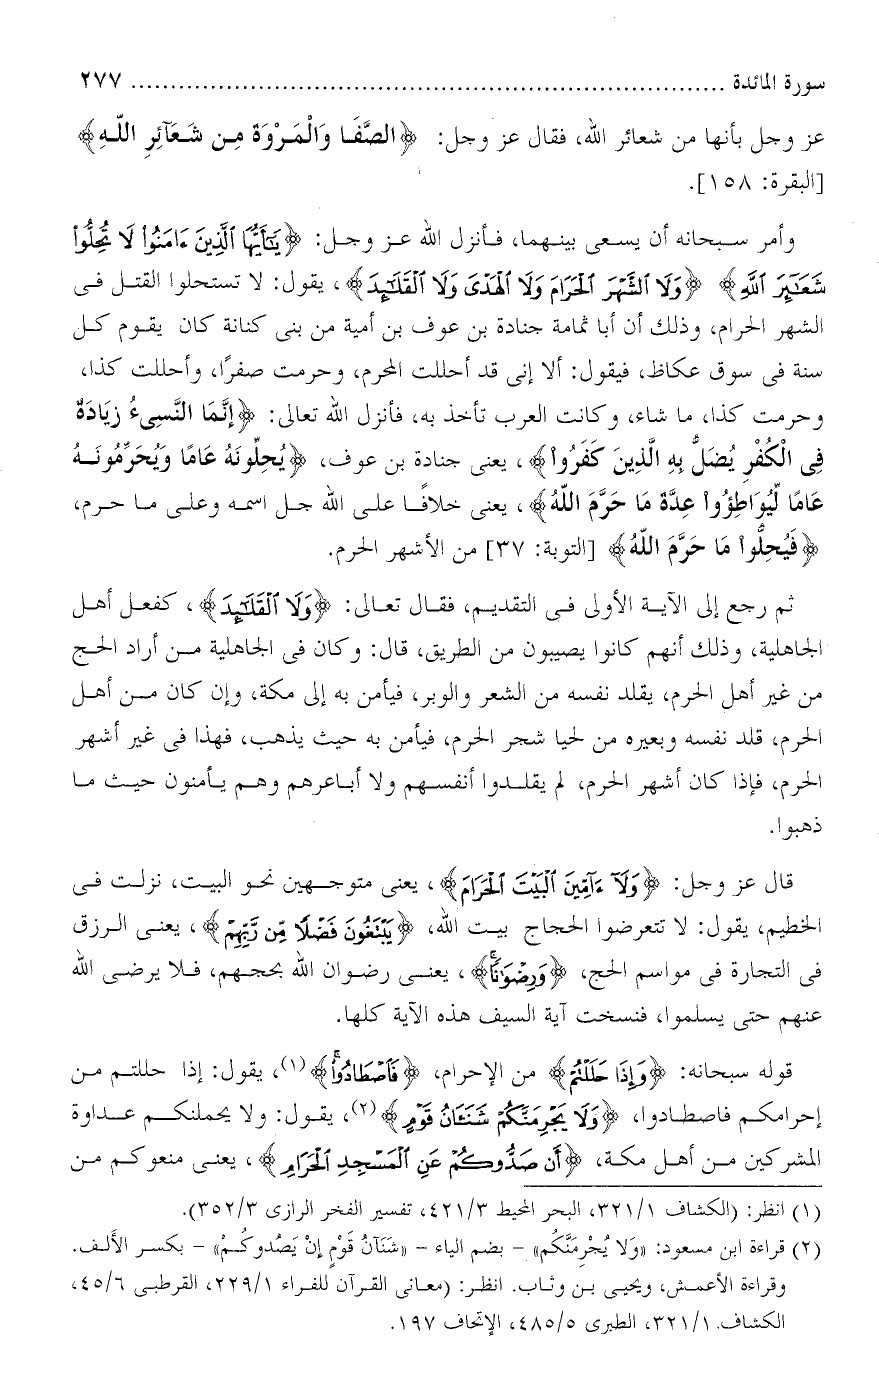 سورة المائدة ........................................................................ ٢٧٧
عز وجل بأنها من شعائر الله، فقال عز وجل: ﴿الصَّفَا وَالْمَرْوَةَ مِن شَعَآئِرِ اللّهِ﴾
[البقرة: ١٥٨].
وأمر سبحانه أن يسعى بينهما، فأنزل الله عز وجل: ﴿يَٰٓأَيُّهَا ٱلَّذِينَ ءَامَنُوا۟ لَا تُحِلُّوا۟
شَعَٰٓئِرَ ٱللَّهِ﴾ ﴿وَلَا ٱلشَّهْرَ ٱلْحَرَامَ وَلَا ٱلْهَدْىَ وَلَا ٱلْقَلَٰٓئِدَ﴾، يقول: لا تستحلوا القتل فى
الشهر الحرام، وذلك أن أبا ثمامة جنادة بن عوف بن أمية من بنى كنانة كان يقوم كل
سنة فى سوق عكاظ، فيقول: ألا إنى قد أحللت المحرم، وحرمت صفرًا، وأحللت كذا،
وحرمت كذا، ما شاء، وكانت العرب تأخذ به، فأنزل الله تعالى: ﴿إِنَّمَا النَّسِيءُ زِيَادَةٌ
فِي الْكُفْرِ يُضَلُّ بِهِ الَّذِينَ كَفَرُواْ﴾، يعنى جنادة بن عوف، ﴿يُحِلِّونَهُ عَامًا وَيُحَرِّمُونَهُ
عَامًا لِّيُوَاطِؤُواْ عِدَّةَ مَا حَرَّمَ اللّهُ﴾، يعنى خلافًا على الله جل اسمه وعلى ما حرم،
﴿فَيُحِلُّواْ مَا حَرَّمَ اللّهُ﴾ [التوبة: ٣٧] من الأشهر الحرم.
ثم رجع إلى الآية الأولى فى التقديم، فقال تعالى: ﴿وَلَا ٱلْقَلَٰٓئِدَ﴾، كفعل أهل
الجاهلية، وذلك أنهم كانوا يصيبون من الطريق، قال: وكان فى الجاهلية من أراد الحج
من غير أهل الحرم، يقلد نفسه من الشعر والوبر، فيأمن به إلى مكة، وإن كان من أهل
الحرم، قلد نفسه وبعيره من لحيا شجر الحرم، فيأمن به حيث يذهب، فهذا فى غير أشهر
الحرم، فإذا كان أشهر الحرم، لم يقلدوا أنفسهم ولا أباعرهم وهم يأمنون حيث ما
ذهبوا.
قال عز وجل: ﴿وَلَآ ءَآمِّينَ ٱلْبَيْتَ ٱلْحَرَامَ﴾، يعنى متوجهين نحو البيت، نزلت فى
الخطيم، يقول: لا تتعرضوا الحجاج بيت الله، ﴿يَبْتَغُونَ فَضْلًا مِّن رَّبِّهِمْ﴾، يعنى الرزق
فى التجارة فى مواسم الحج، ﴿وَرِضْوَٰنًا﴾، يعنى رضوان الله بحجهم، فلا يرضى الله
عنهم حتى يسلموا، فنسخت آية السيف هذه الآية كلها.
قوله سبحانه: ﴿وَإِذَا حَلَلْتُمْ﴾ من الإحرام، ﴿فَٱصْطَادُوا۟﴾(١)، يقول: إذا حللتم من
إحرامكم فاصطادوا، ﴿وَلَا يَجْرِمَنَّكُمْ شَنَـَٔانُ قَوْمٍ﴾(٢)، يقول: ولا يحملنكم عداوة
المشركين من أهل مكة، ﴿أَن صَدُّوكُمْ عَنِ ٱلْمَسْجِدِ ٱلْحَرَامِ﴾، يعنى منعوكم من
(١) انظر: (الكشاف ٣٢١/١، البحر المحيط ٤٢١/٣، تفسير الفخر الرازى ٣٥٢/٣).
(٢) قراءة ابن مسعود: «وَلا يُجْرِمَنَّكُم» - بضم الياء - «شَنَآنُ قَوْمٍ إِنْ يَصُدوكُمْ» - بكسر الألف.
وقراءة الأعمش، ويحيى بن وثاب. انظر: (معانى القرآن للفراء ٢٢٩/١، القرطبى ٤٥/٦،
الكشاف ٣٢١/١، الطبرى ٤٨٥/٥، الإتحاف ١٩٧.